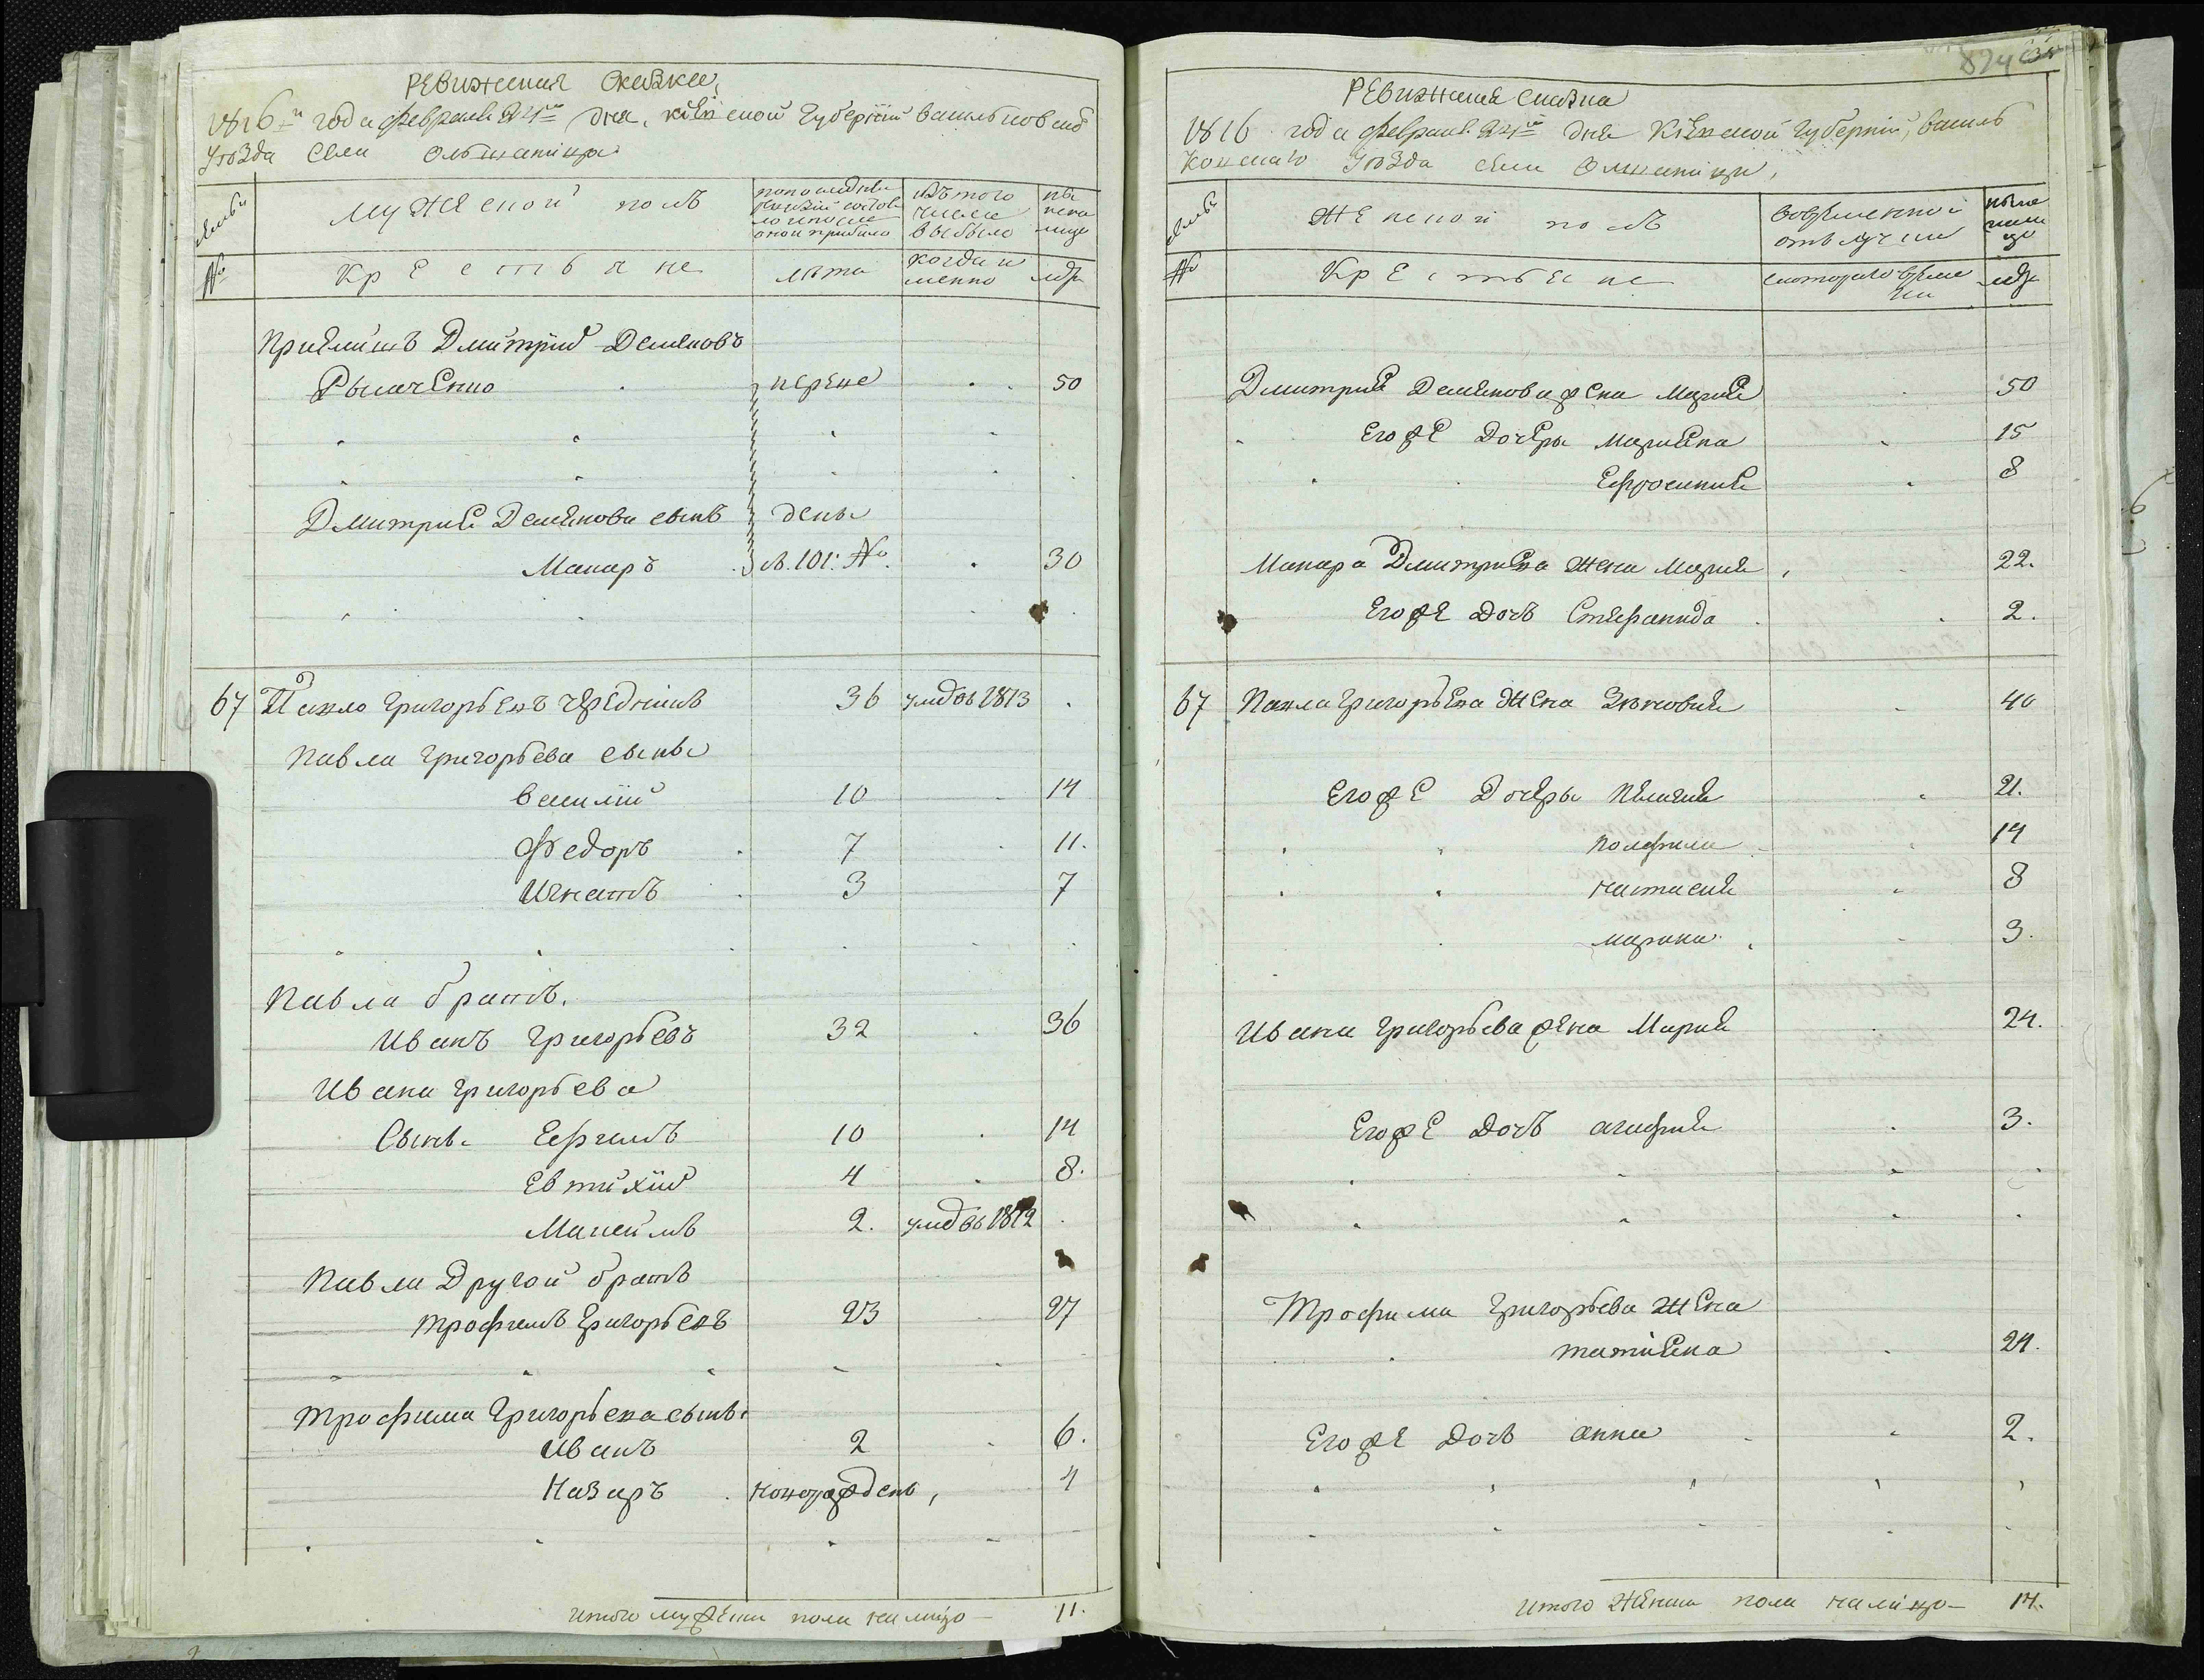 РЕВИЖСКАЯ СКАЗКА,
1816го года февраля 24го дня, киевской губернии васильковскаго
Уезда Села Ольшаници
семьи
мужеской полъ
попоследней ревизии состояло и после оной прибыло
изъ того числа выбыло
ныне на лицо
№
Крестьяне
лета
когда именно
лета
Приймитъ Дмитрий Демяновъ
перене
50
Дмитрия Демянова сынъ
дены
Макаръ
л. 101: №.
30
67 Павло григорьевъ чередникъ 36 умд въ 1813
Павла григорьева сыны
василий 10 14
Федоръ 7 11.
Игнатъ 3 7
Павла братъ.
Иванъ григорьевъ 32 36
Ивана григорьева
Сыны Ефимъ 10 14
Евтихий 4 8.
Максимъ 2. умд въ 1812
Павла другой братъ
трофимъ григорьевъ 23 27
трофима григорьева сыны
Иванъ 2 6.
Назаръ новорожденъ, 4
итого мужеска пола налицо — 11.
824
РЕВИЖСКАЯ сказка
1816 года февраля 24го дня Киевской губернии, василь
ковскаго Уезда села Олшаници,
семьи
женской полъ
вовременной отлучки
ныне налицо
№
Крестьяне
скоторого времени
лета
Дмитрия Демянова жена Мария 50
Егоже дочеры марияна 15
Ефросиния 8
Макара Дмитриева жена Мария, 22.
Егоже дочь Стефанида 2.
67 Павла григорьева жена Зеновия 40
Егоже дочеры пелагия 21.
14
настасия 8
марина 3.
Ивана григорьева жена Мария 24.
Егоже дочь агафия 3.
Трофима григорьева жена
татияна 24.
Егоже дочь анна 2.
итого женска пола налицо — 14.